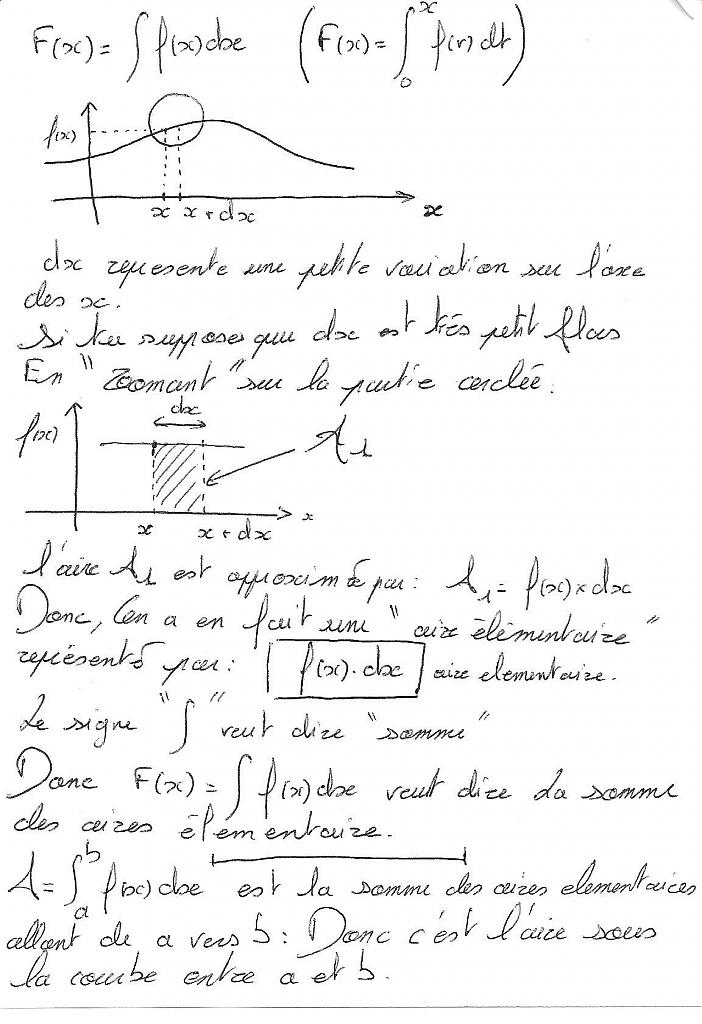 F(x) = ∫ f(x) dx (F(x) = ∫₀ˣ f(t) dt)
f(x)
x x+dx x
dx représente une petite variation sur l'axe
des x.
Si tu supposes que dx est très petit Alors
En "Zoomant" sur la partie cerclée.
dx
f(x) A₁
x x+dx x
l'aire A₁ est approximée par : A₁ = f(x) × dx
Donc, l'on a en fait une "aire élémentaire"
représenté par : f(x) . dx aire elementaire.
Le signe "∫" veut dire "somme"
Donc F(x) = ∫ f(x) dx veut dire La somme
des aires élémentaire.
A = ∫ₐᵇ f(x) dx est la somme des aires elementaires
allant de a vers b : Donc c'est l'aire sous
la courbe entre a et b.